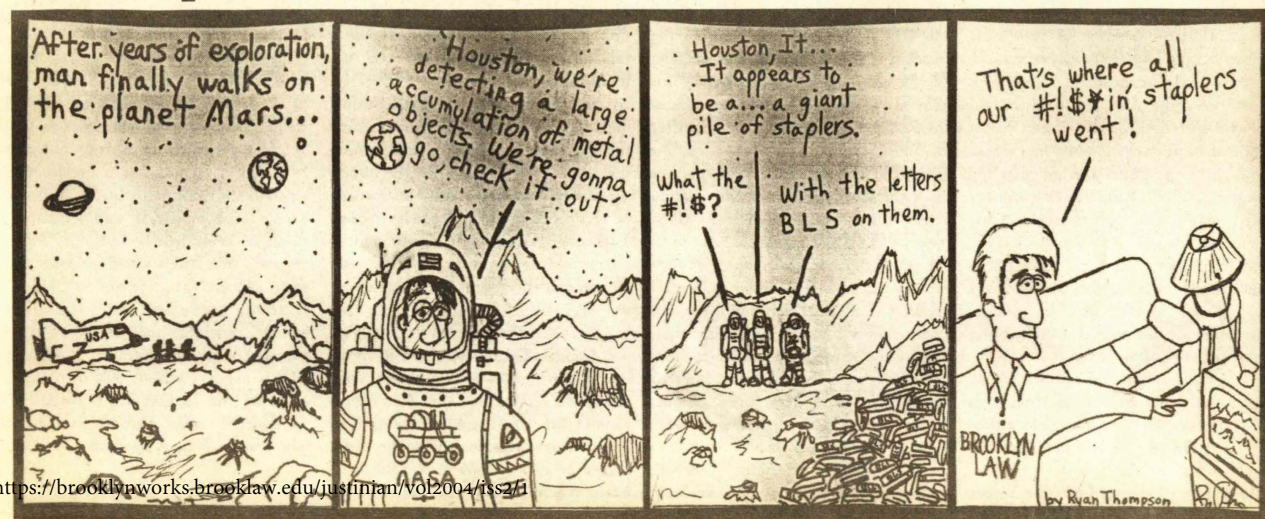 After years of exploration,
man finally walks on
the planet Mars...
USA
Houston, we're
detecting a large
accumulation of metal
objects. We're gonna
go, check it out.
NASA
Houston, It...
It appears to
be a... a giant
pile of staplers.
What the
#!$?
With the letters
B L S on them.
That's where all
our #!$*in' staplers
went!
BROOKLYN
LAW
by Ryan Thompson
https://brooklynworks.brooklaw.edu/justinian/vol2004/iss2/1